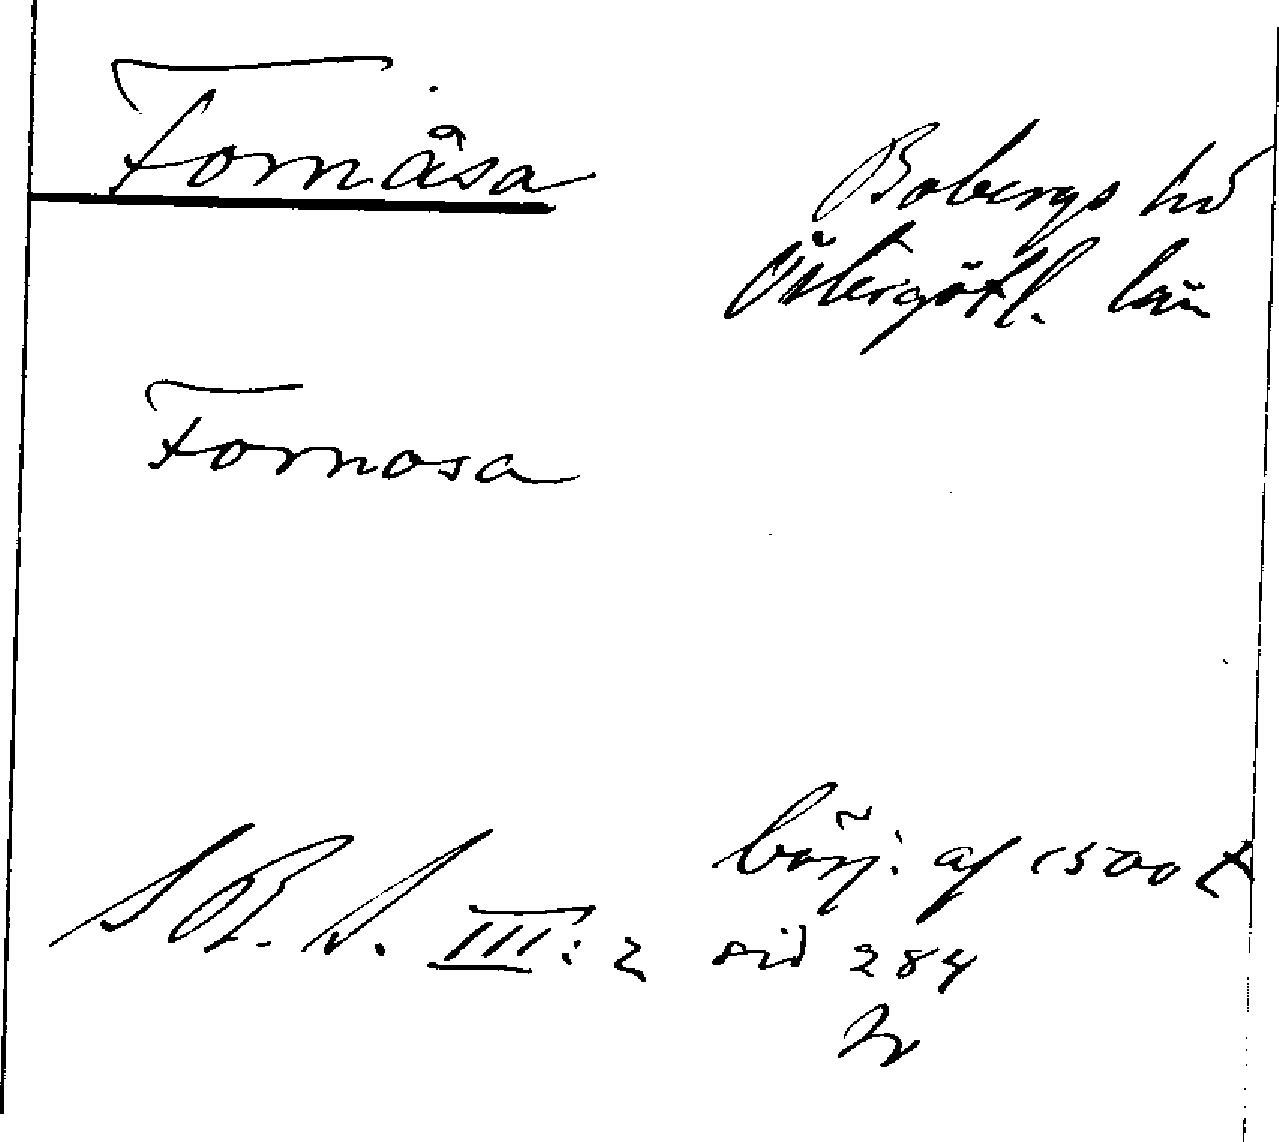 Fornåsa
Bobergs hd
Östergötl. län
Fornosa
börj. af 1500 t
S R. S. III: 2 sid 284